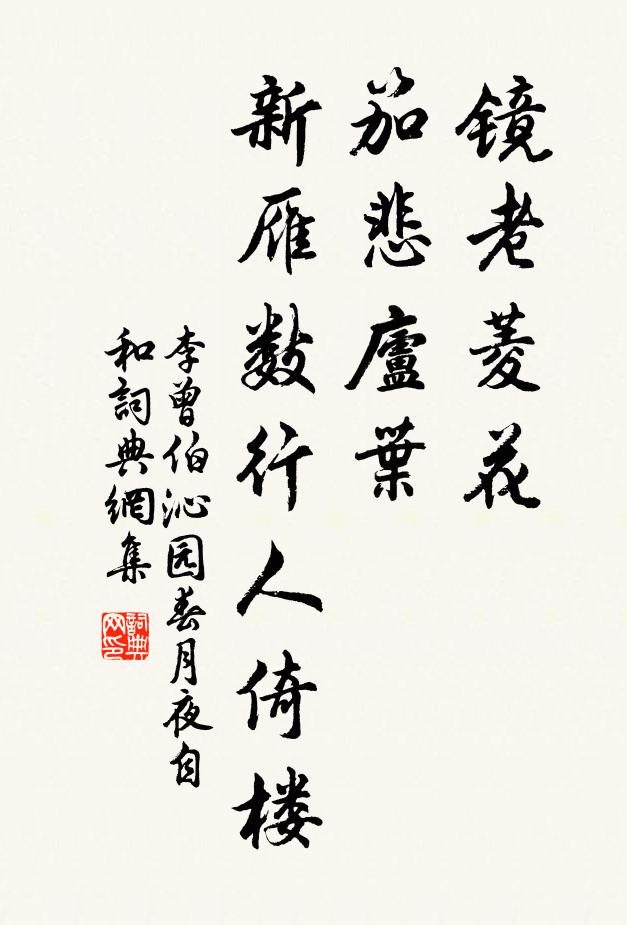 镜老菱花
笳悲廬葉
新雁数行人倚楼
李曾伯沁园春月夜自
和詞典網集
詞典
网印